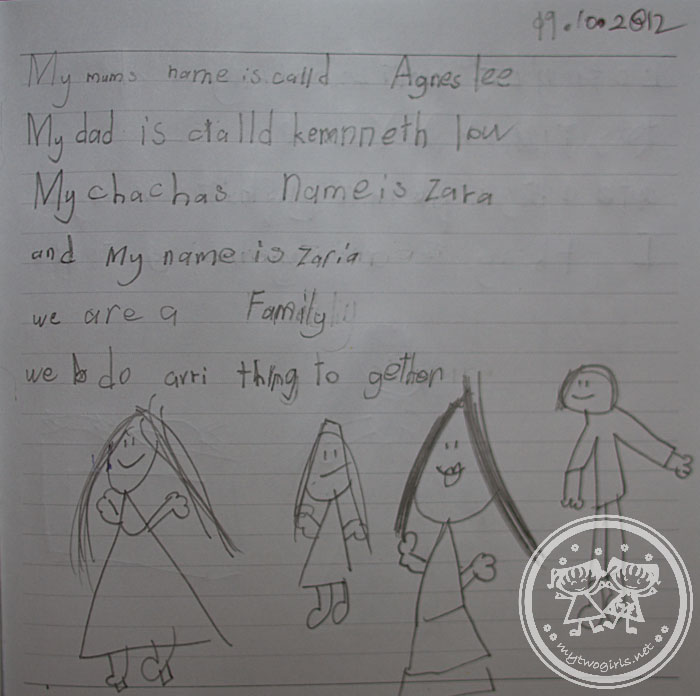 09.10.2012
My mums name is calld Agnes lee
My dad is ctalld kemnneth low
My chachas name is Zara
and My name is Zaria
we are a Family
we do arri thing to gether
mytwogirls.net